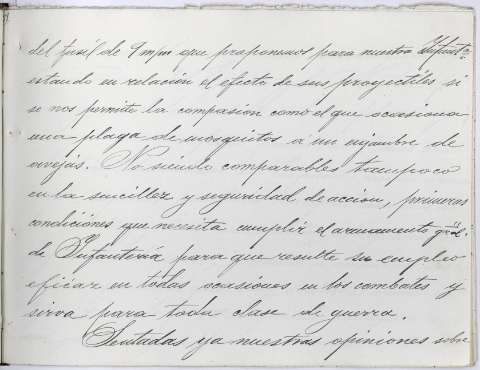 del fusil de 9 m/m que proponemos para nuestra Infantª
estando en relación el efecto de sus proyectiles si
se nos permite la compasión como el que ocasiona
una plaga de mosquitos á un enjambre de
avejas. No siendo comparables tampoco
en la sencillez y seguridad de accion, primeras
condiciones que necesita cumplir el armamento gral.
de Infantería para que resulte su empleo
eficaz en todas ocasiones en los combates y
sirva para toda clase de guerra.
Sentadas ya nuestras opiniones sobre